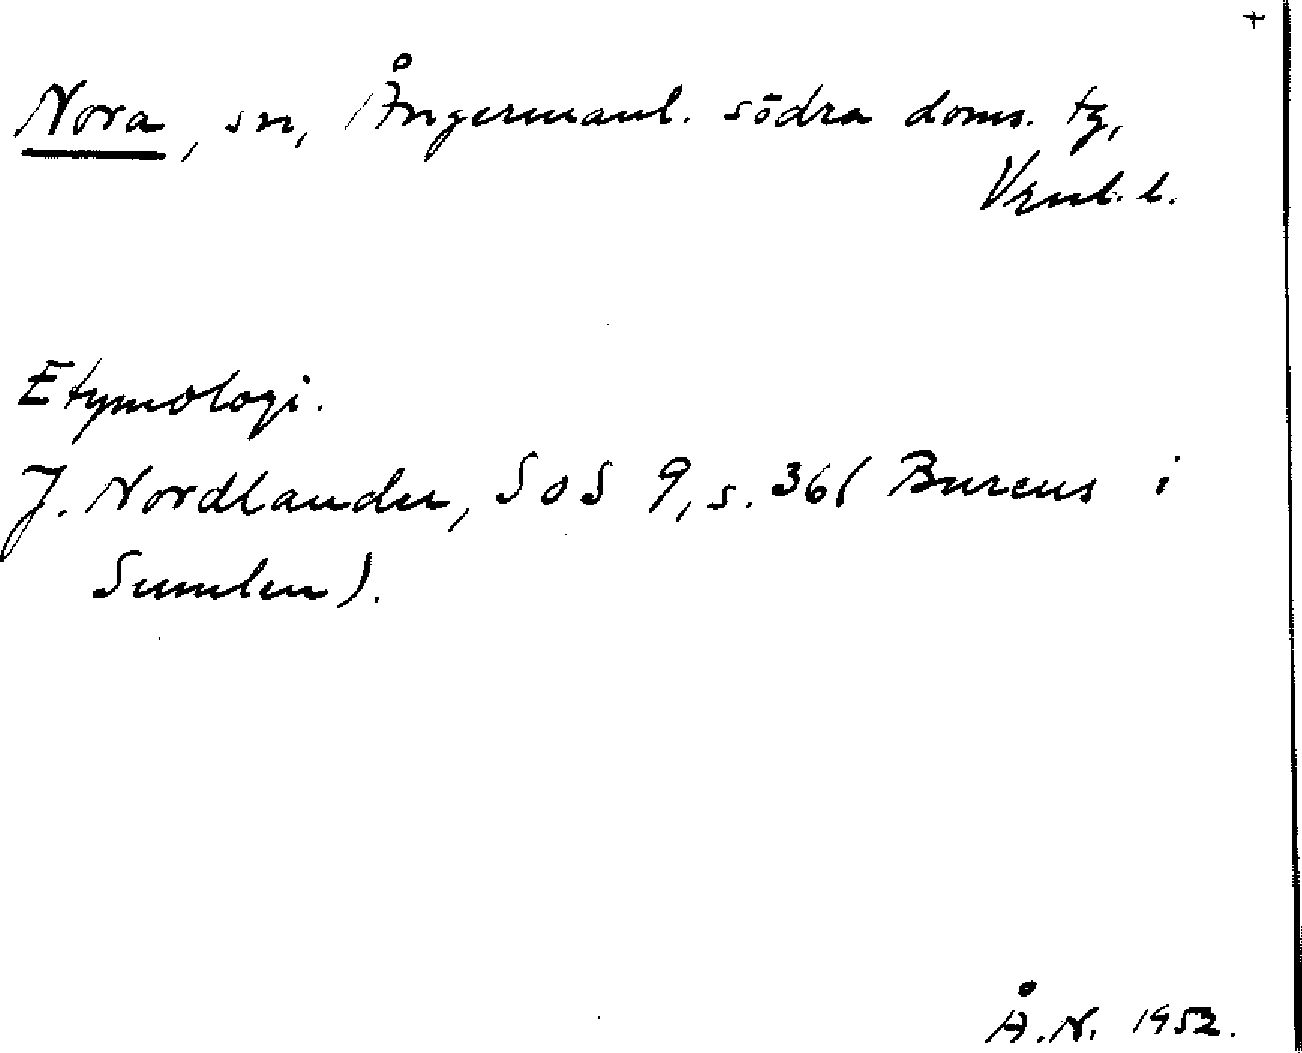 +
Nora, sn, Ångermanl. södra doms. tg,
Vgnl. l.
Etymologi.
J. Nordlander, SoS 9, s. 36 (Bureus i
Sumlen).
Å.N. 1952.